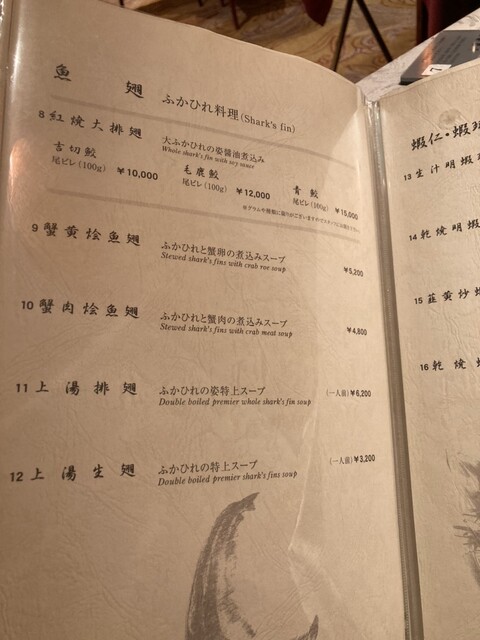 魚 翅 ふかひれ料理(Shark's fin)
8 紅焼大排翅 大ふかひれの姿醤油煮込み
Whole shark's fin with soy sauce
吉切鮫
尾ビレ(100g) ¥10,000
毛鹿鮫
尾ビレ(100g) ¥12,000
青鮫
尾ビレ(100g) ¥15,000
9 蟹黄烩魚翅 ふかひれと蟹卵の煮込みスープ
Stewed shark's fins with crab roe soup
¥5,200
10 蟹肉烩魚翅 ふかひれと蟹肉の煮込みスープ
Stewed shark's fins with crab meat soup
¥4,800
11 上湯排翅 ふかひれの姿特上スープ
Double boiled premier whole shark's fin soup
(一人前)¥6,200
12 上湯生翅 ふかひれの特上スープ
Double boiled premier shark's fins soup
(一人前)¥3,200
蝦仁・蝦球
13 生汁明蝦
14 乾焼明蝦
15 韮黄炒蝦
16 乾焼